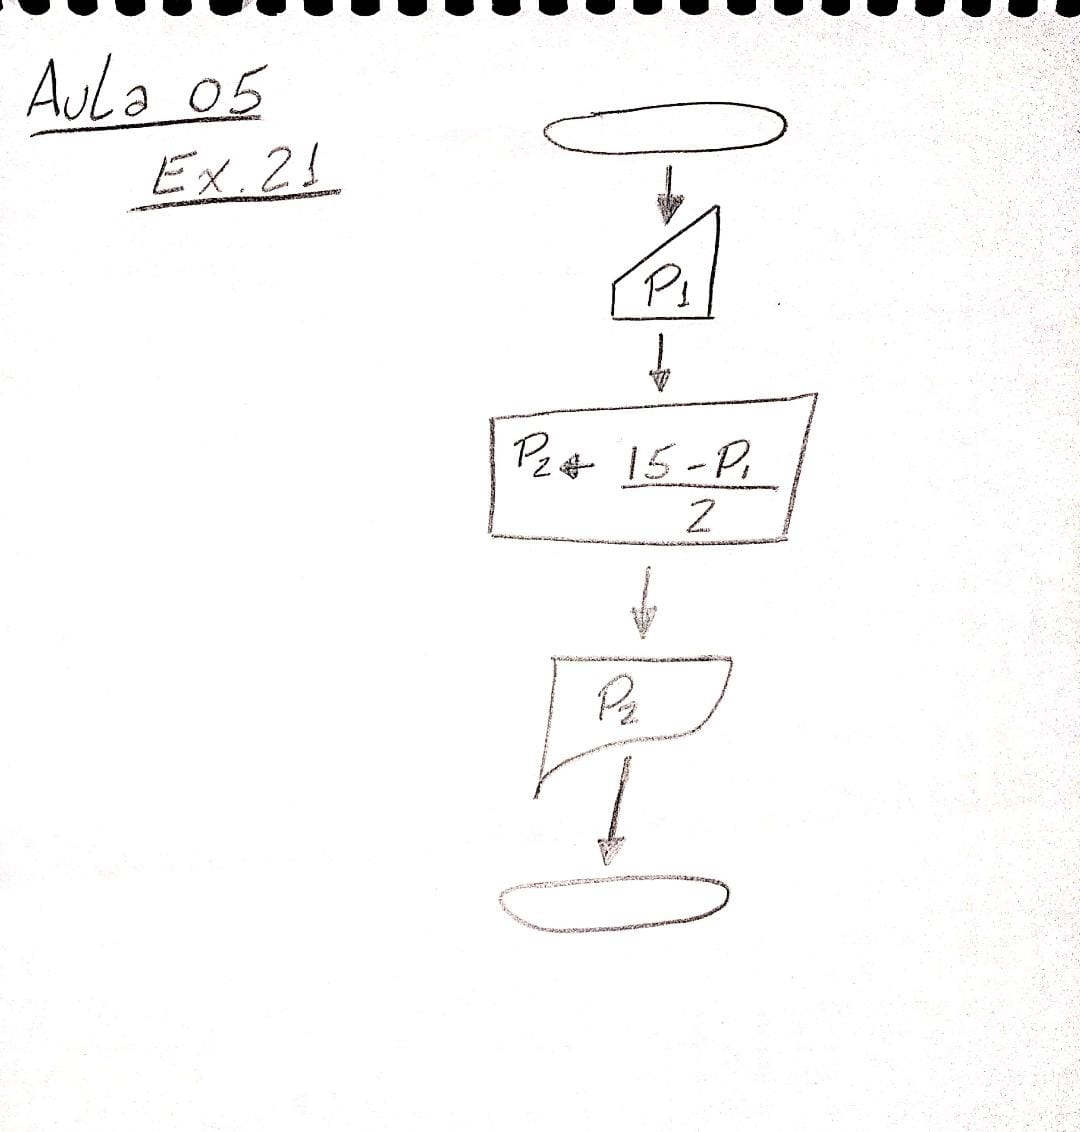 Aula 05
Ex. 21
P1
P2 ← 15 - P1
2
P2